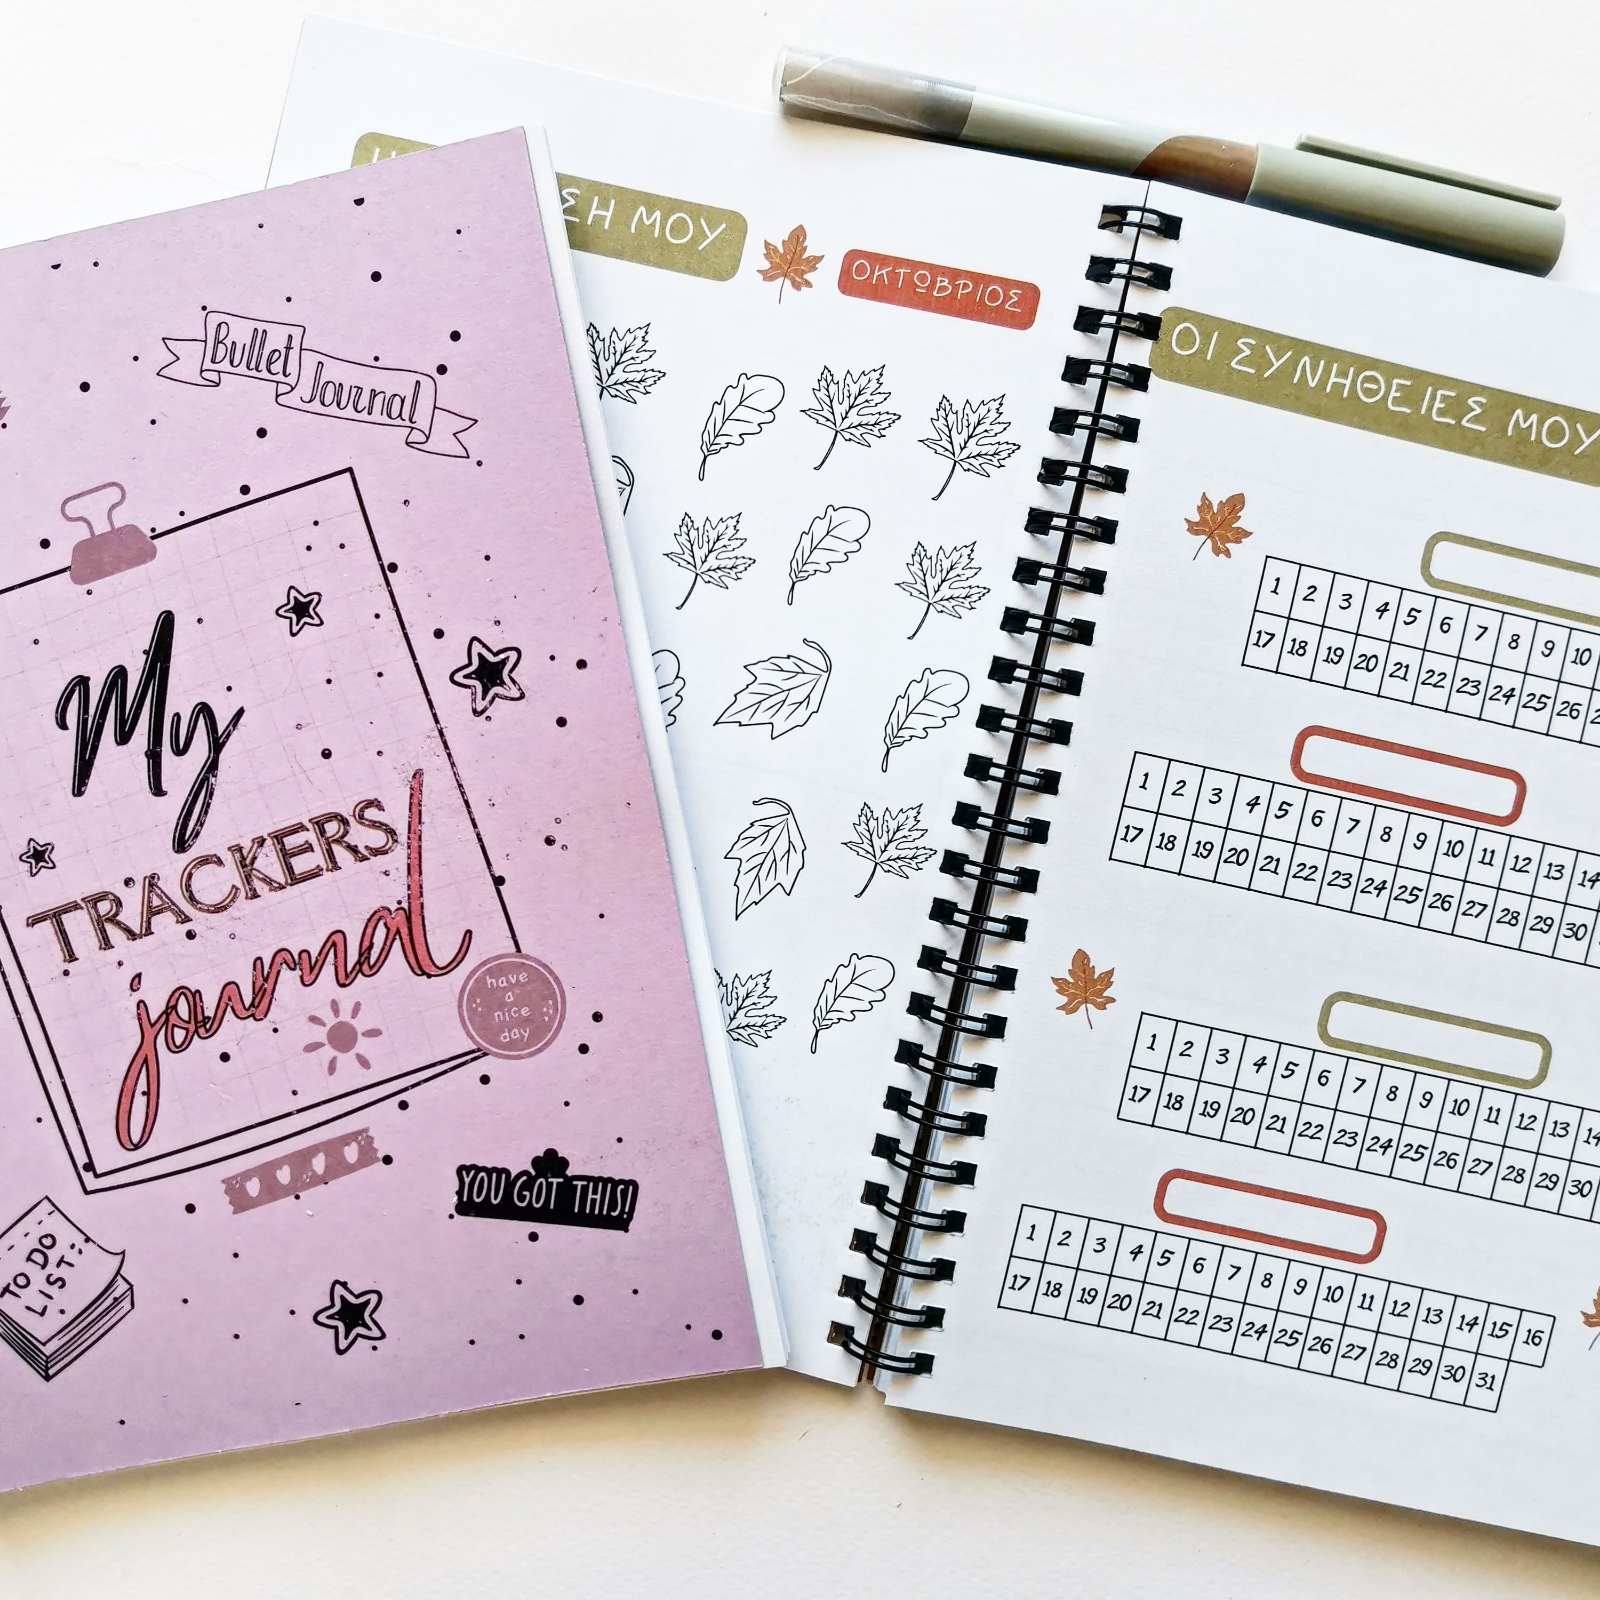 Bullet
Journal
My
TRACKERS
journal
have
a
nice
day
YOU GOT THIS!
TO DO
LIST
ΜΟΥ
ΟΚΤΩΒΡΙΟΣ
ΟΙ ΣΥΝΗΘΕΙΕΣ ΜΟΥ
1 2 3 4 5 6 7 8 9 10
17 18 19 20 21 22 23 24 25 26
1 2 3 4 5 6 7 8 9 10 11 12 13 14
17 18 19 20 21 22 23 24 25 26 27 28 29 30
1 2 3 4 5 6 7 8 9 10 11 12 13 14
17 18 19 20 21 22 23 24 25 26 27 28 29 30
1 2 3 4 5 6 7 8 9 10 11 12 13 14 15 16
17 18 19 20 21 22 23 24 25 26 27 28 29 30 31